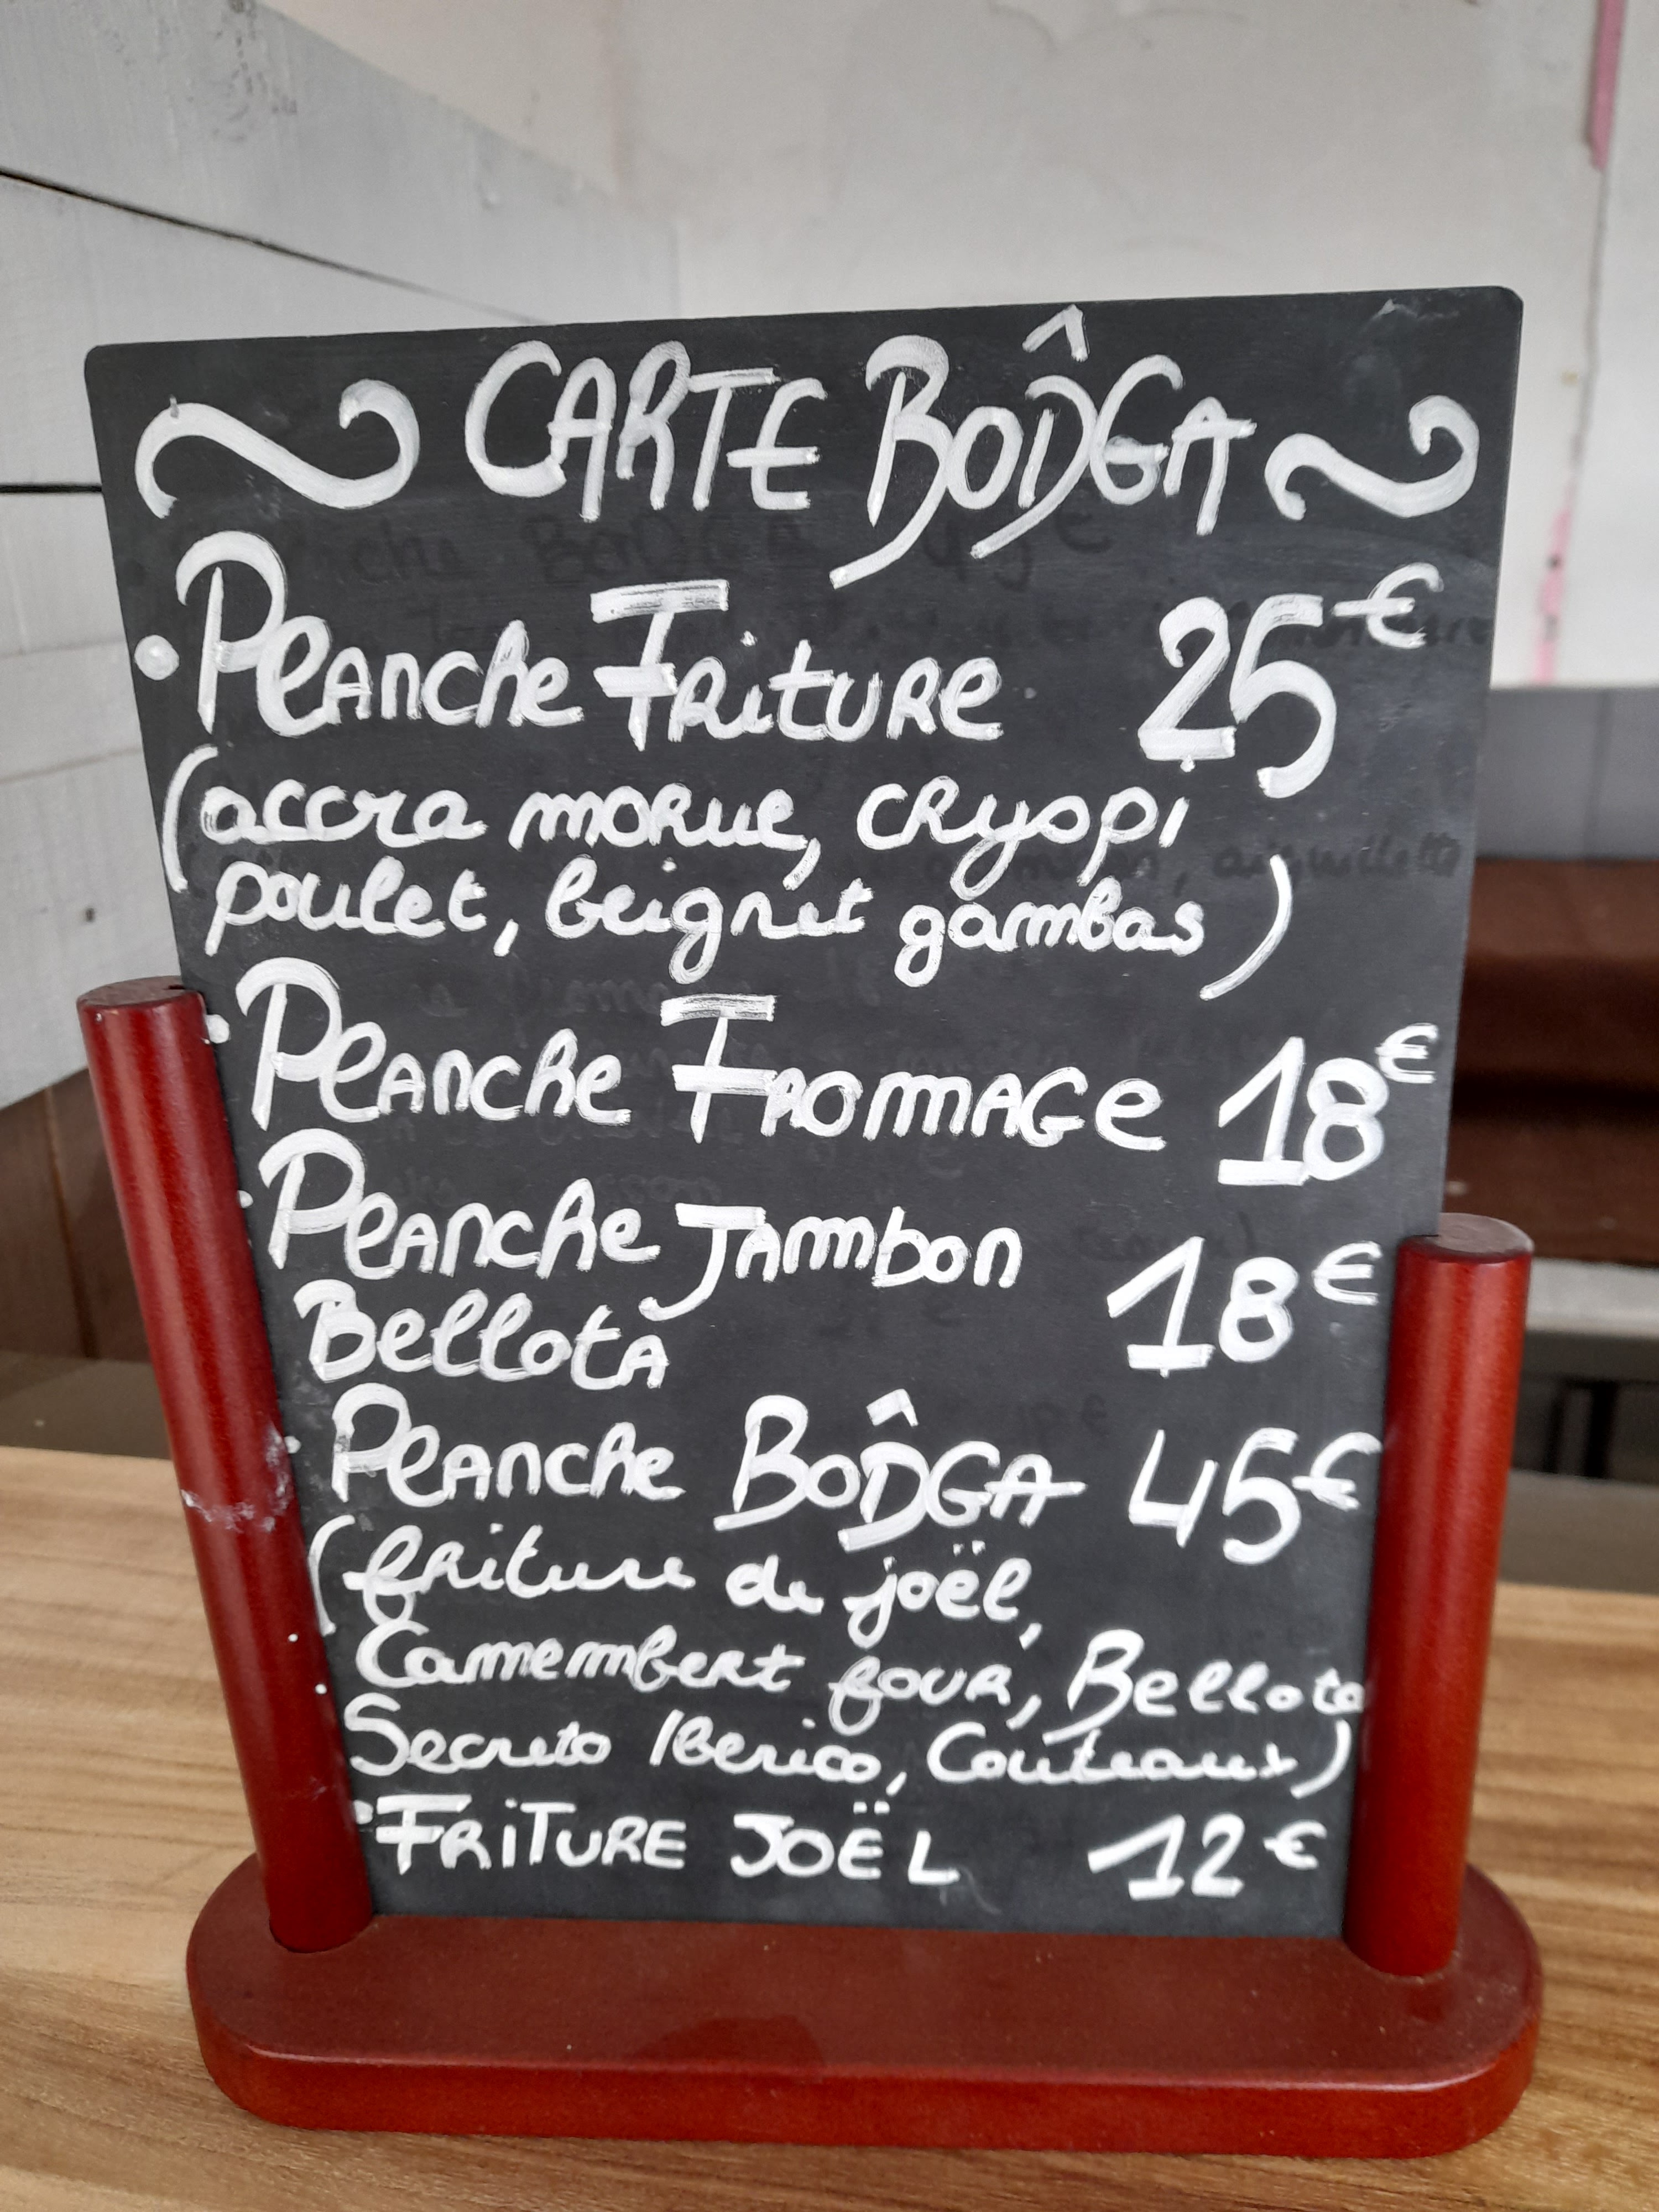 CARTE BODGA
• Planche Friture 25€
(accra morue, cryspi
poulet, beignet gambas)
• Planche Fromage 18€
• Planche Jambon
Bellota 18€
• Planche BODGA 45€
(friture de joël,
Camembert four, Bellota
Secreto Iberico, Couteaux)
• FRITURE JOËL 12€